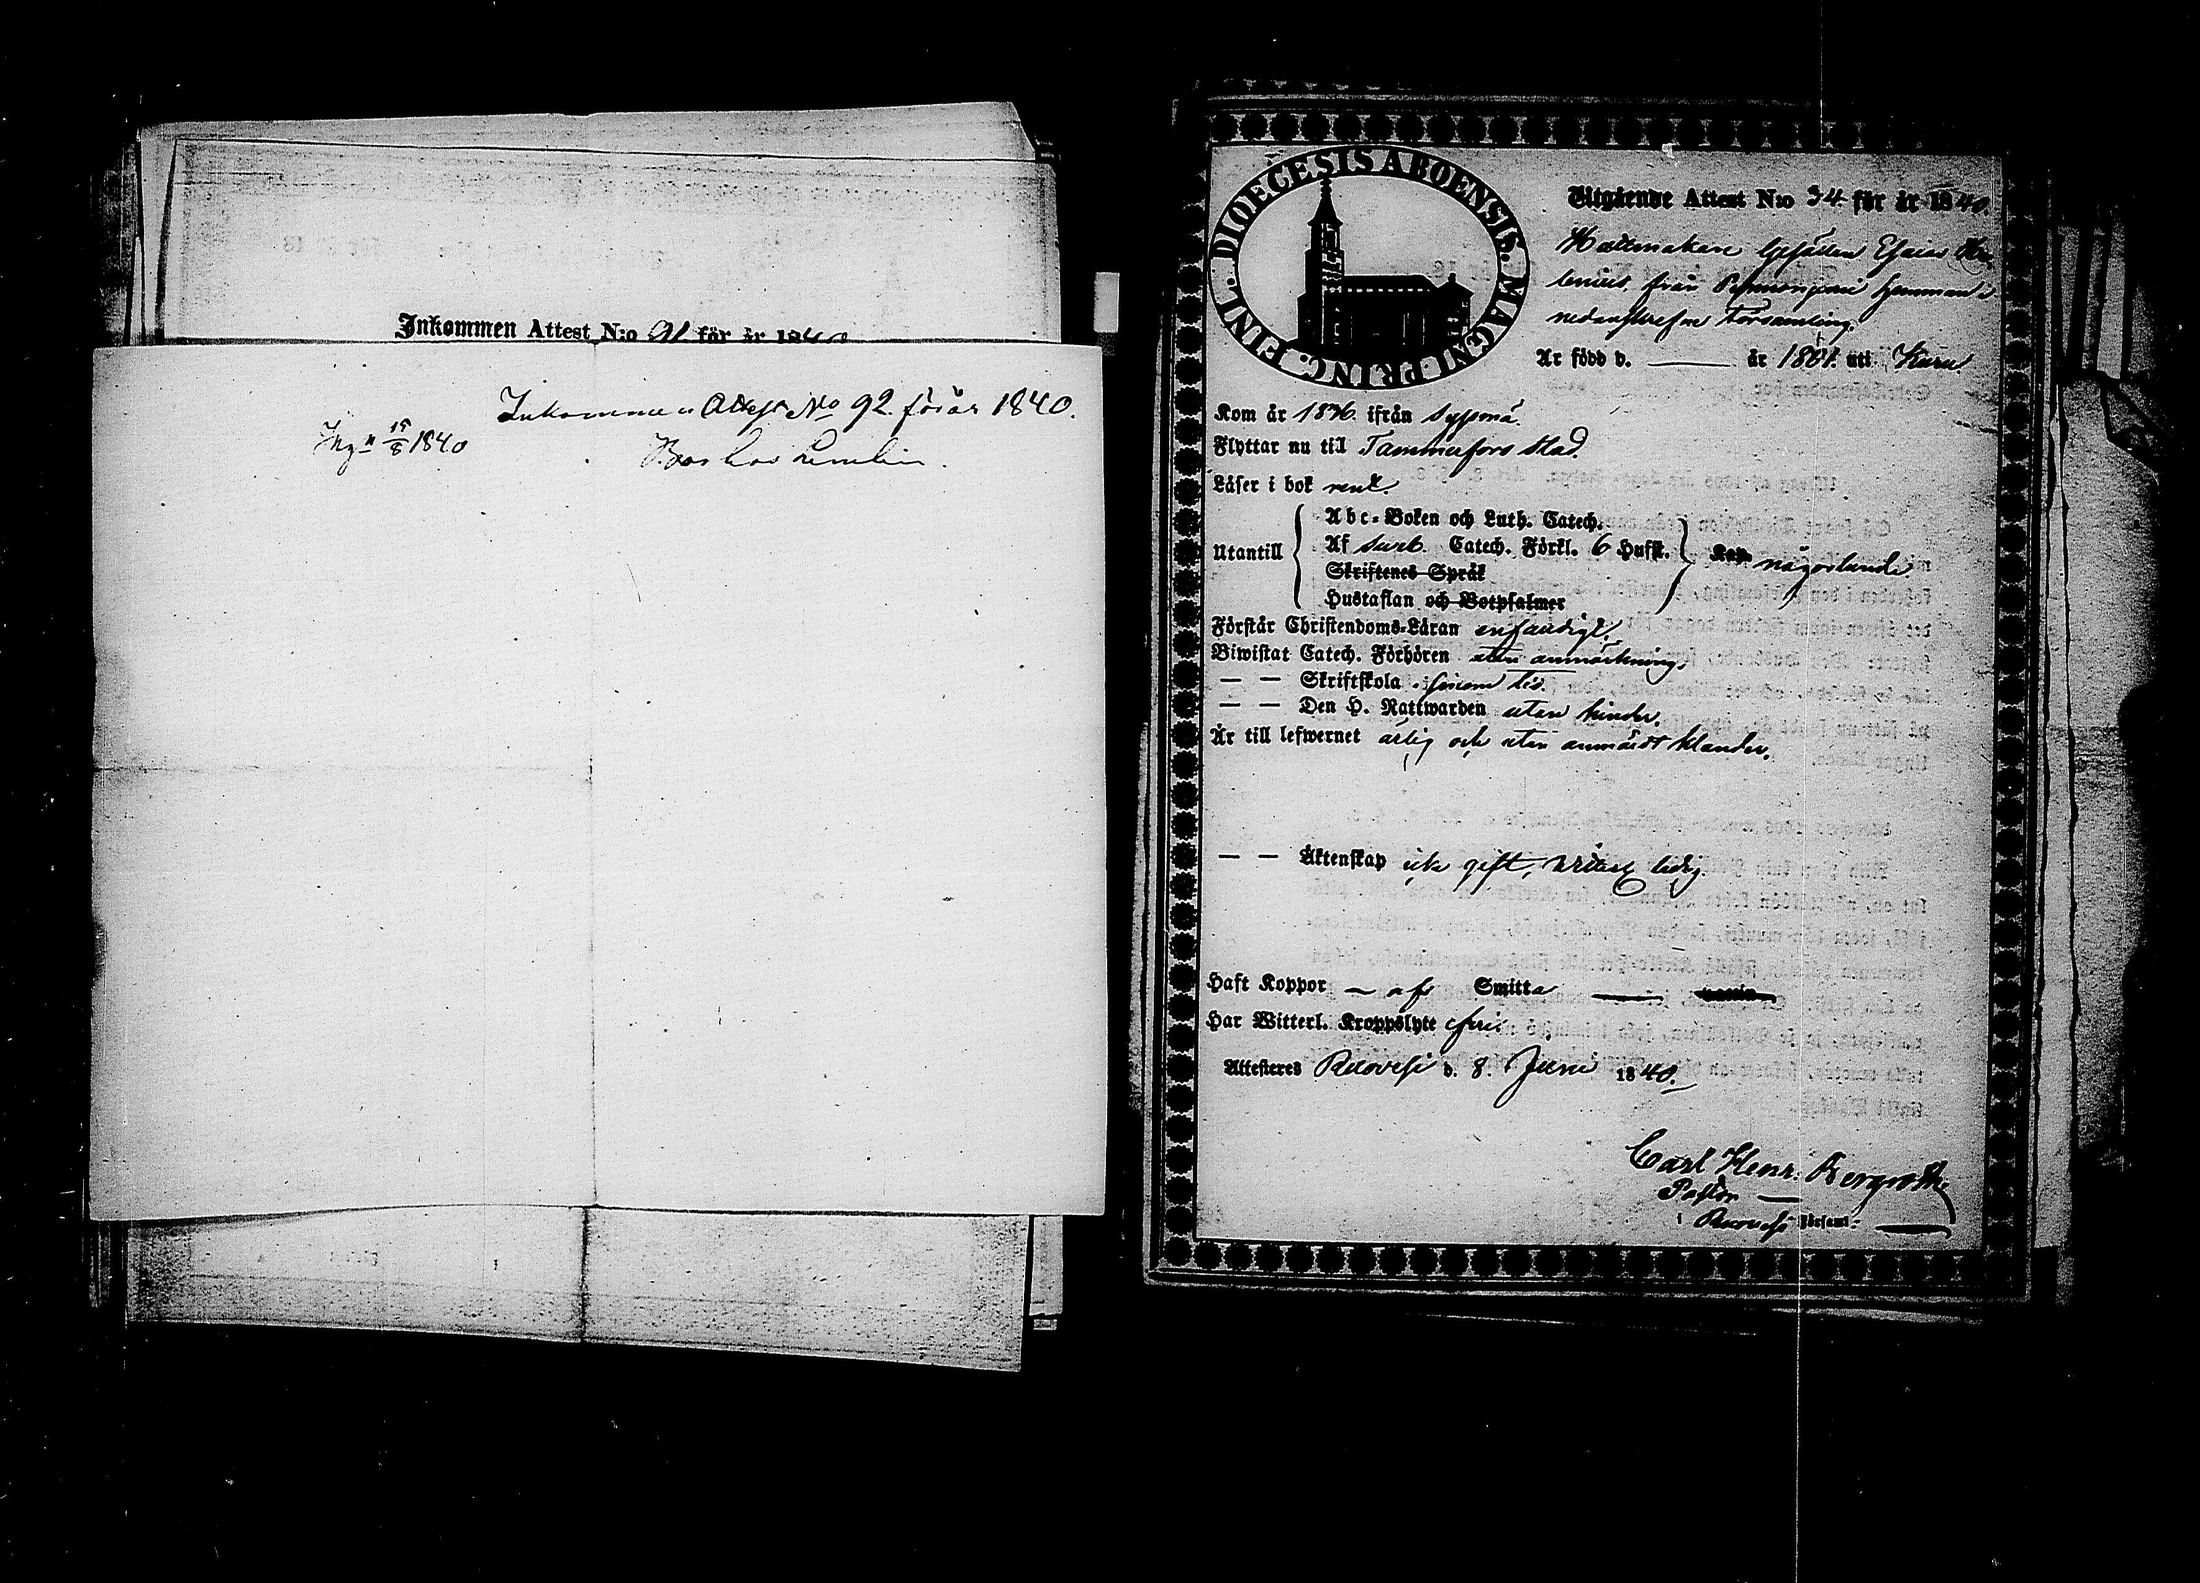 Inkommen Attest N:o 91 för år 1840
Inkommen Attest No 92. för år 1840.
Ing. 15/8 1840
FINL. DIOECESIS ABOENSIS. MAGNI PRINC.
Utgående Attest N:o 34 för år 1840.
Hattmakare Gesällen Esaias
från hemman i
nedanskrefne Församling.
Är född d. — år 1801. uti Kuru
Kom år 1836. ifrån
Flyttar nu till Tammerfors Stad.
Läser i bok rent.
Utantill
Abc-Boken och Luth. Catech.
Af Sveb. Catech. Förkl. 6 Hufst.
Skriftenes Språk
Hustaflan och Botpsalmer
Kan någorlunda.
Förstår Christendoms-Läran enfaldigt.
Biwistat Catech. Förhören utan anmärkning.
— — Skriftskola sinom tid.
— — Den H. Nattwarden utan hinder.
Är till lefwernet ärlig och utan anmärdt klander.
— — Äktenskap icke gift, ledig.
Haft Koppor — af Smitta —
Har Witterl. Kroppslyte fri.
Attesteres Ruovesi d. 8. Juni 1840.
Carl Henr. Bergroth
Pastor —
i Ruovesi församl. —